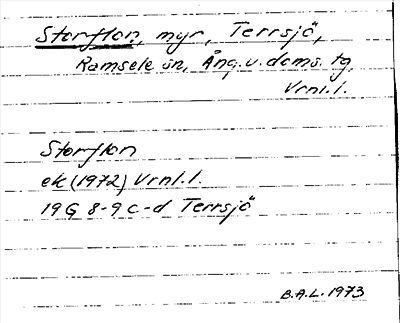 Storflon, myr, Terrsjö,
Ramsele sn, Ång.v.doms.tg,
Vrnl.l.
Storflon
ek (1972) Vrnl.l.
19G 8-9 c-d Terrsjö
B.A.L. 1973